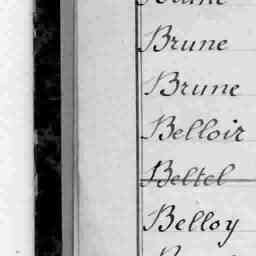 Brune
Brune
Belloir
Beltel
Belloy